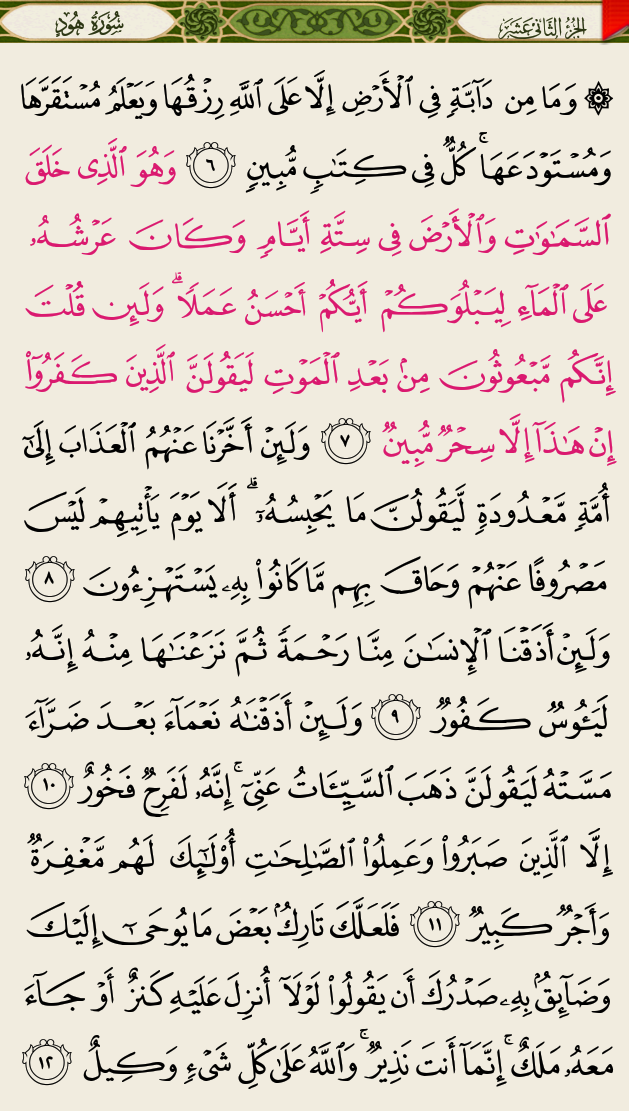 الجزء الثاني عشر
سورة هود
۞ وَمَا مِن دَآبَّةٖ فِي ٱلۡأَرۡضِ إِلَّا عَلَى ٱللَّهِ رِزۡقُهَا وَيَعۡلَمُ مُسۡتَقَرَّهَا
وَمُسۡتَوۡدَعَهَاۚ كُلّٞ فِي كِتَٰبٖ مُّبِينٖ ٦ وَهُوَ ٱلَّذِي خَلَقَ
ٱلسَّمَٰوَٰتِ وَٱلۡأَرۡضَ فِي سِتَّةِ أَيَّامٖ وَكَانَ عَرۡشُهُۥ
عَلَى ٱلۡمَآءِ لِيَبۡلُوَكُمۡ أَيُّكُمۡ أَحۡسَنُ عَمَلٗاۗ وَلَئِن قُلۡتَ
إِنَّكُم مَّبۡعُوثُونَ مِنۢ بَعۡدِ ٱلۡمَوۡتِ لَيَقُولَنَّ ٱلَّذِينَ كَفَرُوٓاْ
إِنۡ هَٰذَآ إِلَّا سِحۡرٞ مُّبِينٞ ٧ وَلَئِنۡ أَخَّرۡنَا عَنۡهُمُ ٱلۡعَذَابَ إِلَىٰٓ
أُمَّةٖ مَّعۡدُودَةٖ لَّيَقُولُنَّ مَا يَحۡبِسُهُۥٓۗ أَلَا يَوۡمَ يَأۡتِيهِمۡ لَيۡسَ
مَصۡرُوفًا عَنۡهُمۡ وَحَاقَ بِهِم مَّا كَانُواْ بِهِۦ يَسۡتَهۡزِءُونَ ٨
وَلَئِنۡ أَذَقۡنَا ٱلۡإِنسَٰنَ مِنَّا رَحۡمَةٗ ثُمَّ نَزَعۡنَٰهَا مِنۡهُ إِنَّهُۥ
لَيَـُٔوسٞ كَفُورٞ ٩ وَلَئِنۡ أَذَقۡنَٰهُ نَعۡمَآءَ بَعۡدَ ضَرَّآءَ
مَسَّتۡهُ لَيَقُولَنَّ ذَهَبَ ٱلسَّيِّـَٔاتُ عَنِّيٓۚ إِنَّهُۥ لَفَرِحٞ فَخُورٌ ١٠
إِلَّا ٱلَّذِينَ صَبَرُواْ وَعَمِلُواْ ٱلصَّٰلِحَٰتِ أُوْلَٰٓئِكَ لَهُم مَّغۡفِرَةٞ
وَأَجۡرٞ كَبِيرٞ ١١ فَلَعَلَّكَ تَارِكُۢ بَعۡضَ مَا يُوحَىٰٓ إِلَيۡكَ
وَضَآئِقُۢ بِهِۦ صَدۡرُكَ أَن يَقُولُواْ لَوۡلَآ أُنزِلَ عَلَيۡهِ كَنزٌ أَوۡ جَآءَ
مَعَهُۥ مَلَكٌۚ إِنَّمَآ أَنتَ نَذِيرٞۚ وَٱللَّهُ عَلَىٰ كُلِّ شَيۡءٖ وَكِيلٌ ١٢